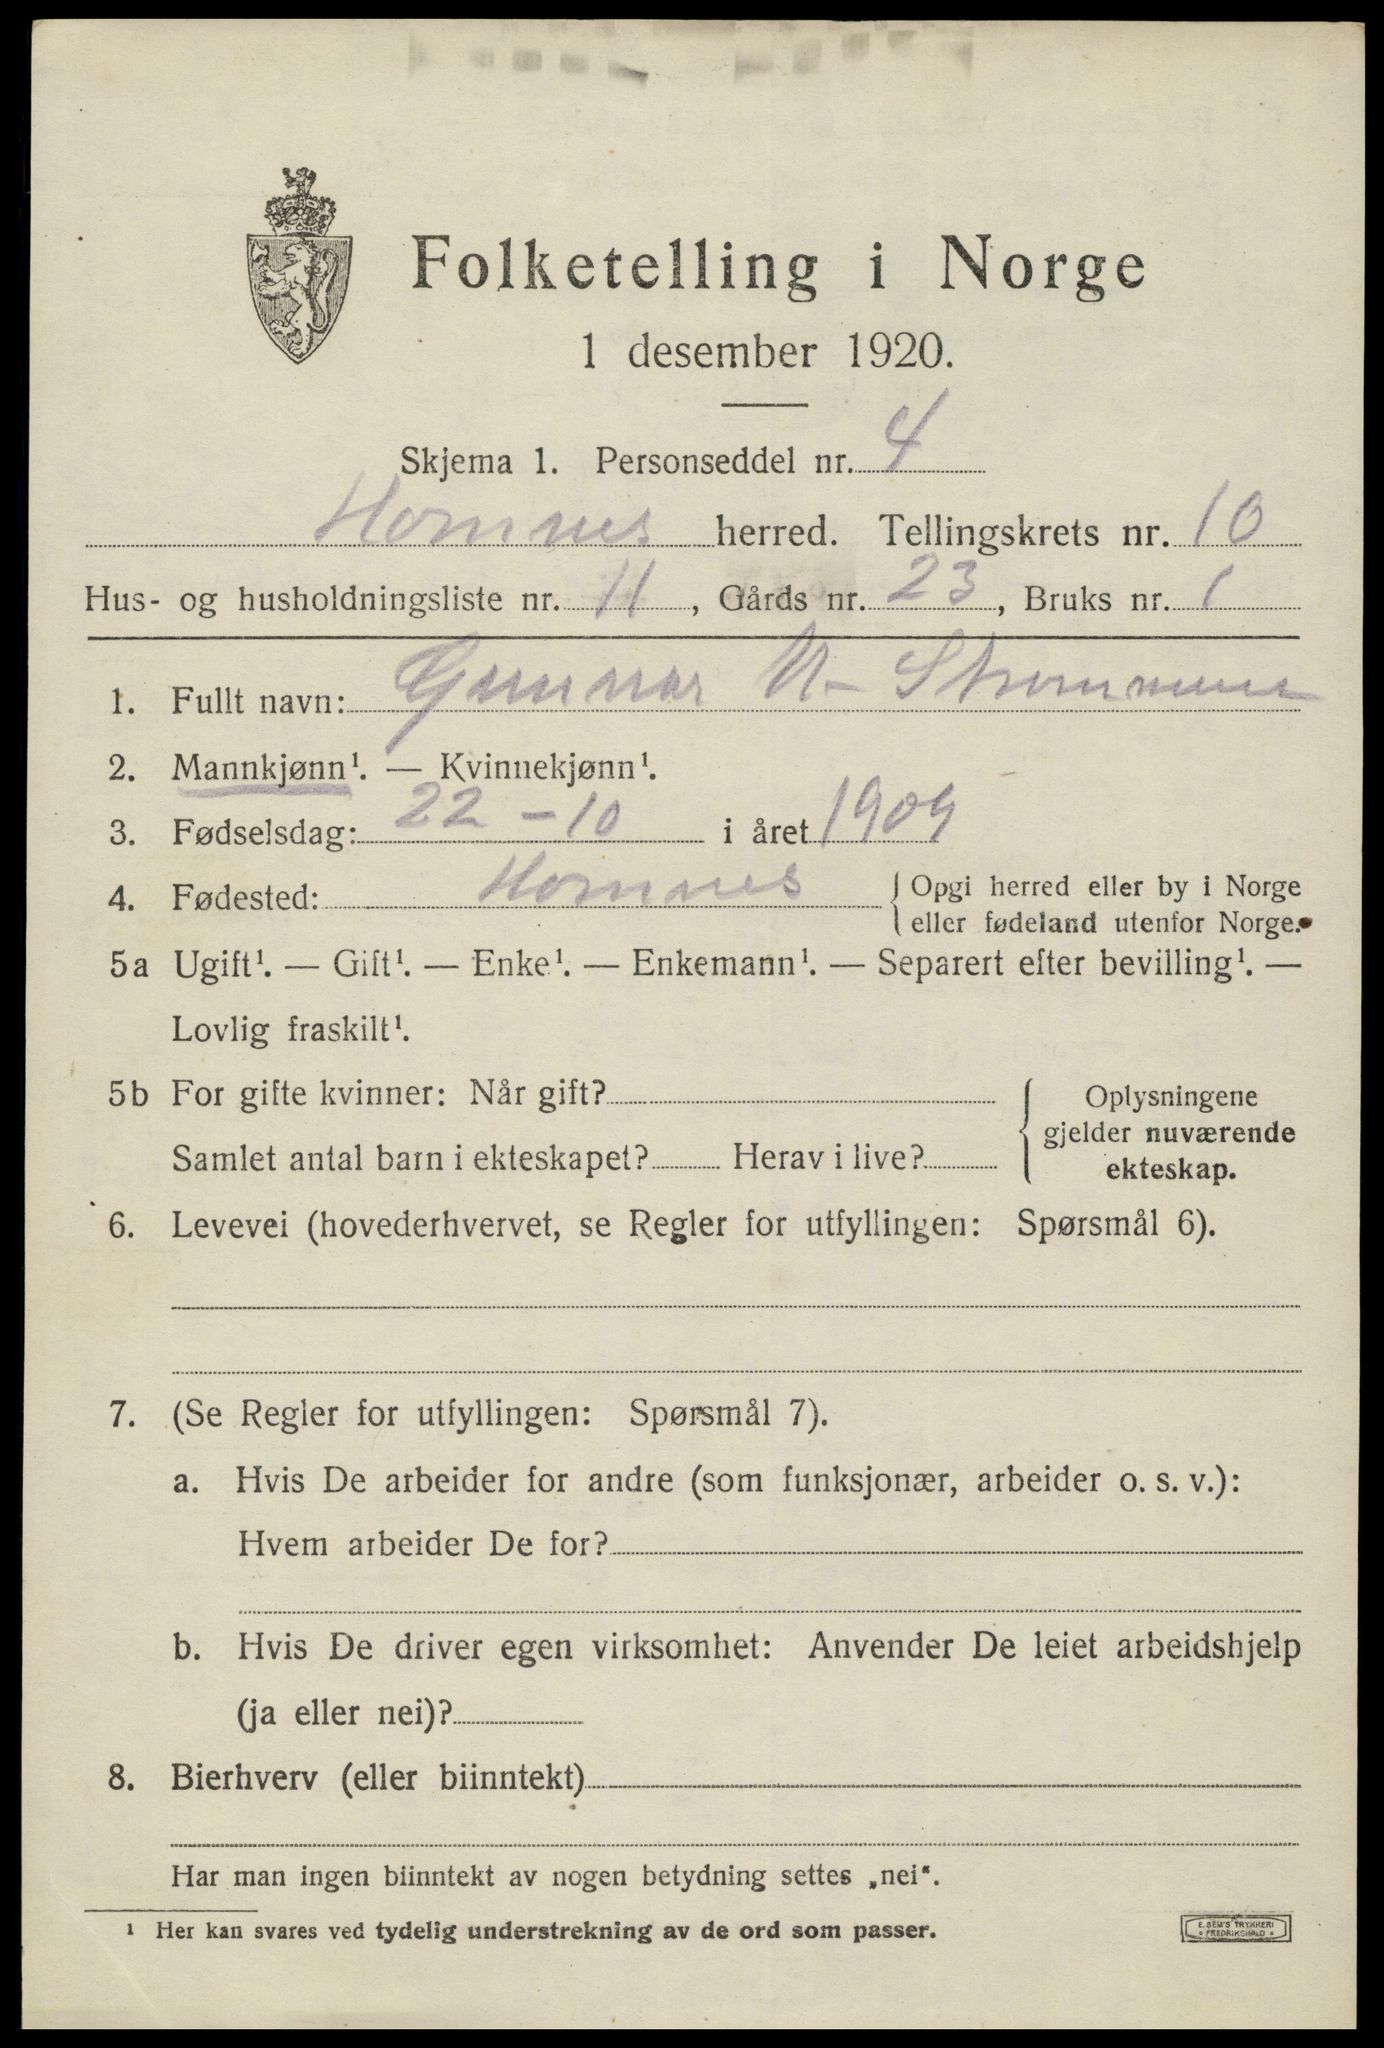 Folketelling i Norge
1 desember 1920.
Skjema 1. Personseddel nr. 4
Homnes herred. Tellingskrets nr. 10
Hus- og husholdningsliste nr. 11, Gårds nr. 23, Bruks nr. 1
1. Fullt navn: Gunnar N-
2. Mannkjønn¹. — Kvinnekjønn¹.
3. Fødselsdag: 22-10 i året 1909
4. Fødested: Homnes { Opgi herred eller by i Norge
eller fødeland utenfor Norge.
5a Ugift¹. — Gift¹. — Enke¹. — Enkemann¹. — Separert efter bevilling¹. —
Lovlig fraskilt¹.
5b For gifte kvinner: Når gift?
Samlet antal barn i ekteskapet? Herav i live?
{ Oplysningene
gjelder nuværende
ekteskap.
6. Levevei (hovederhvervet, se Regler for utfyllingen: Spørsmål 6).
7. (Se Regler for utfyllingen: Spørsmål 7).
a. Hvis De arbeider for andre (som funksjonær, arbeider o. s. v.):
Hvem arbeider De for?
b. Hvis De driver egen virksomhet: Anvender De leiet arbeidshjelp
(ja eller nei)?
8. Bierhverv (eller biinntekt)
Har man ingen biinntekt av nogen betydning settes „nei“.
¹ Her kan svares ved tydelig understrekning av de ord som passer.
E. SEM'S TRYKKERI
FREDRIKSHALD